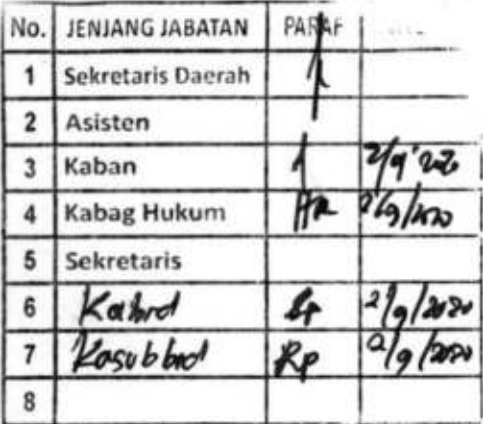 No. JENJANG JABATAN PARAF
1 Sekretaris Daerah
2 Asisten
3 Kaban 2/9'2020
4 Kabag Hukum 2/9/2020
5 Sekretaris
6 Kabid 2/9/2020
7 Kasubbid Rp 2/9/2020
8